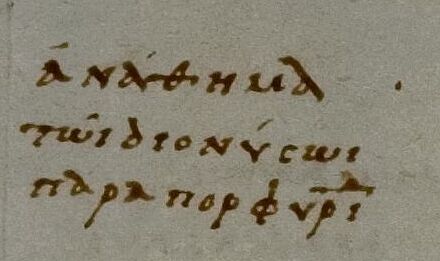 ἀνάθημα
τῶι διονύσωι
παρα πορφυρί